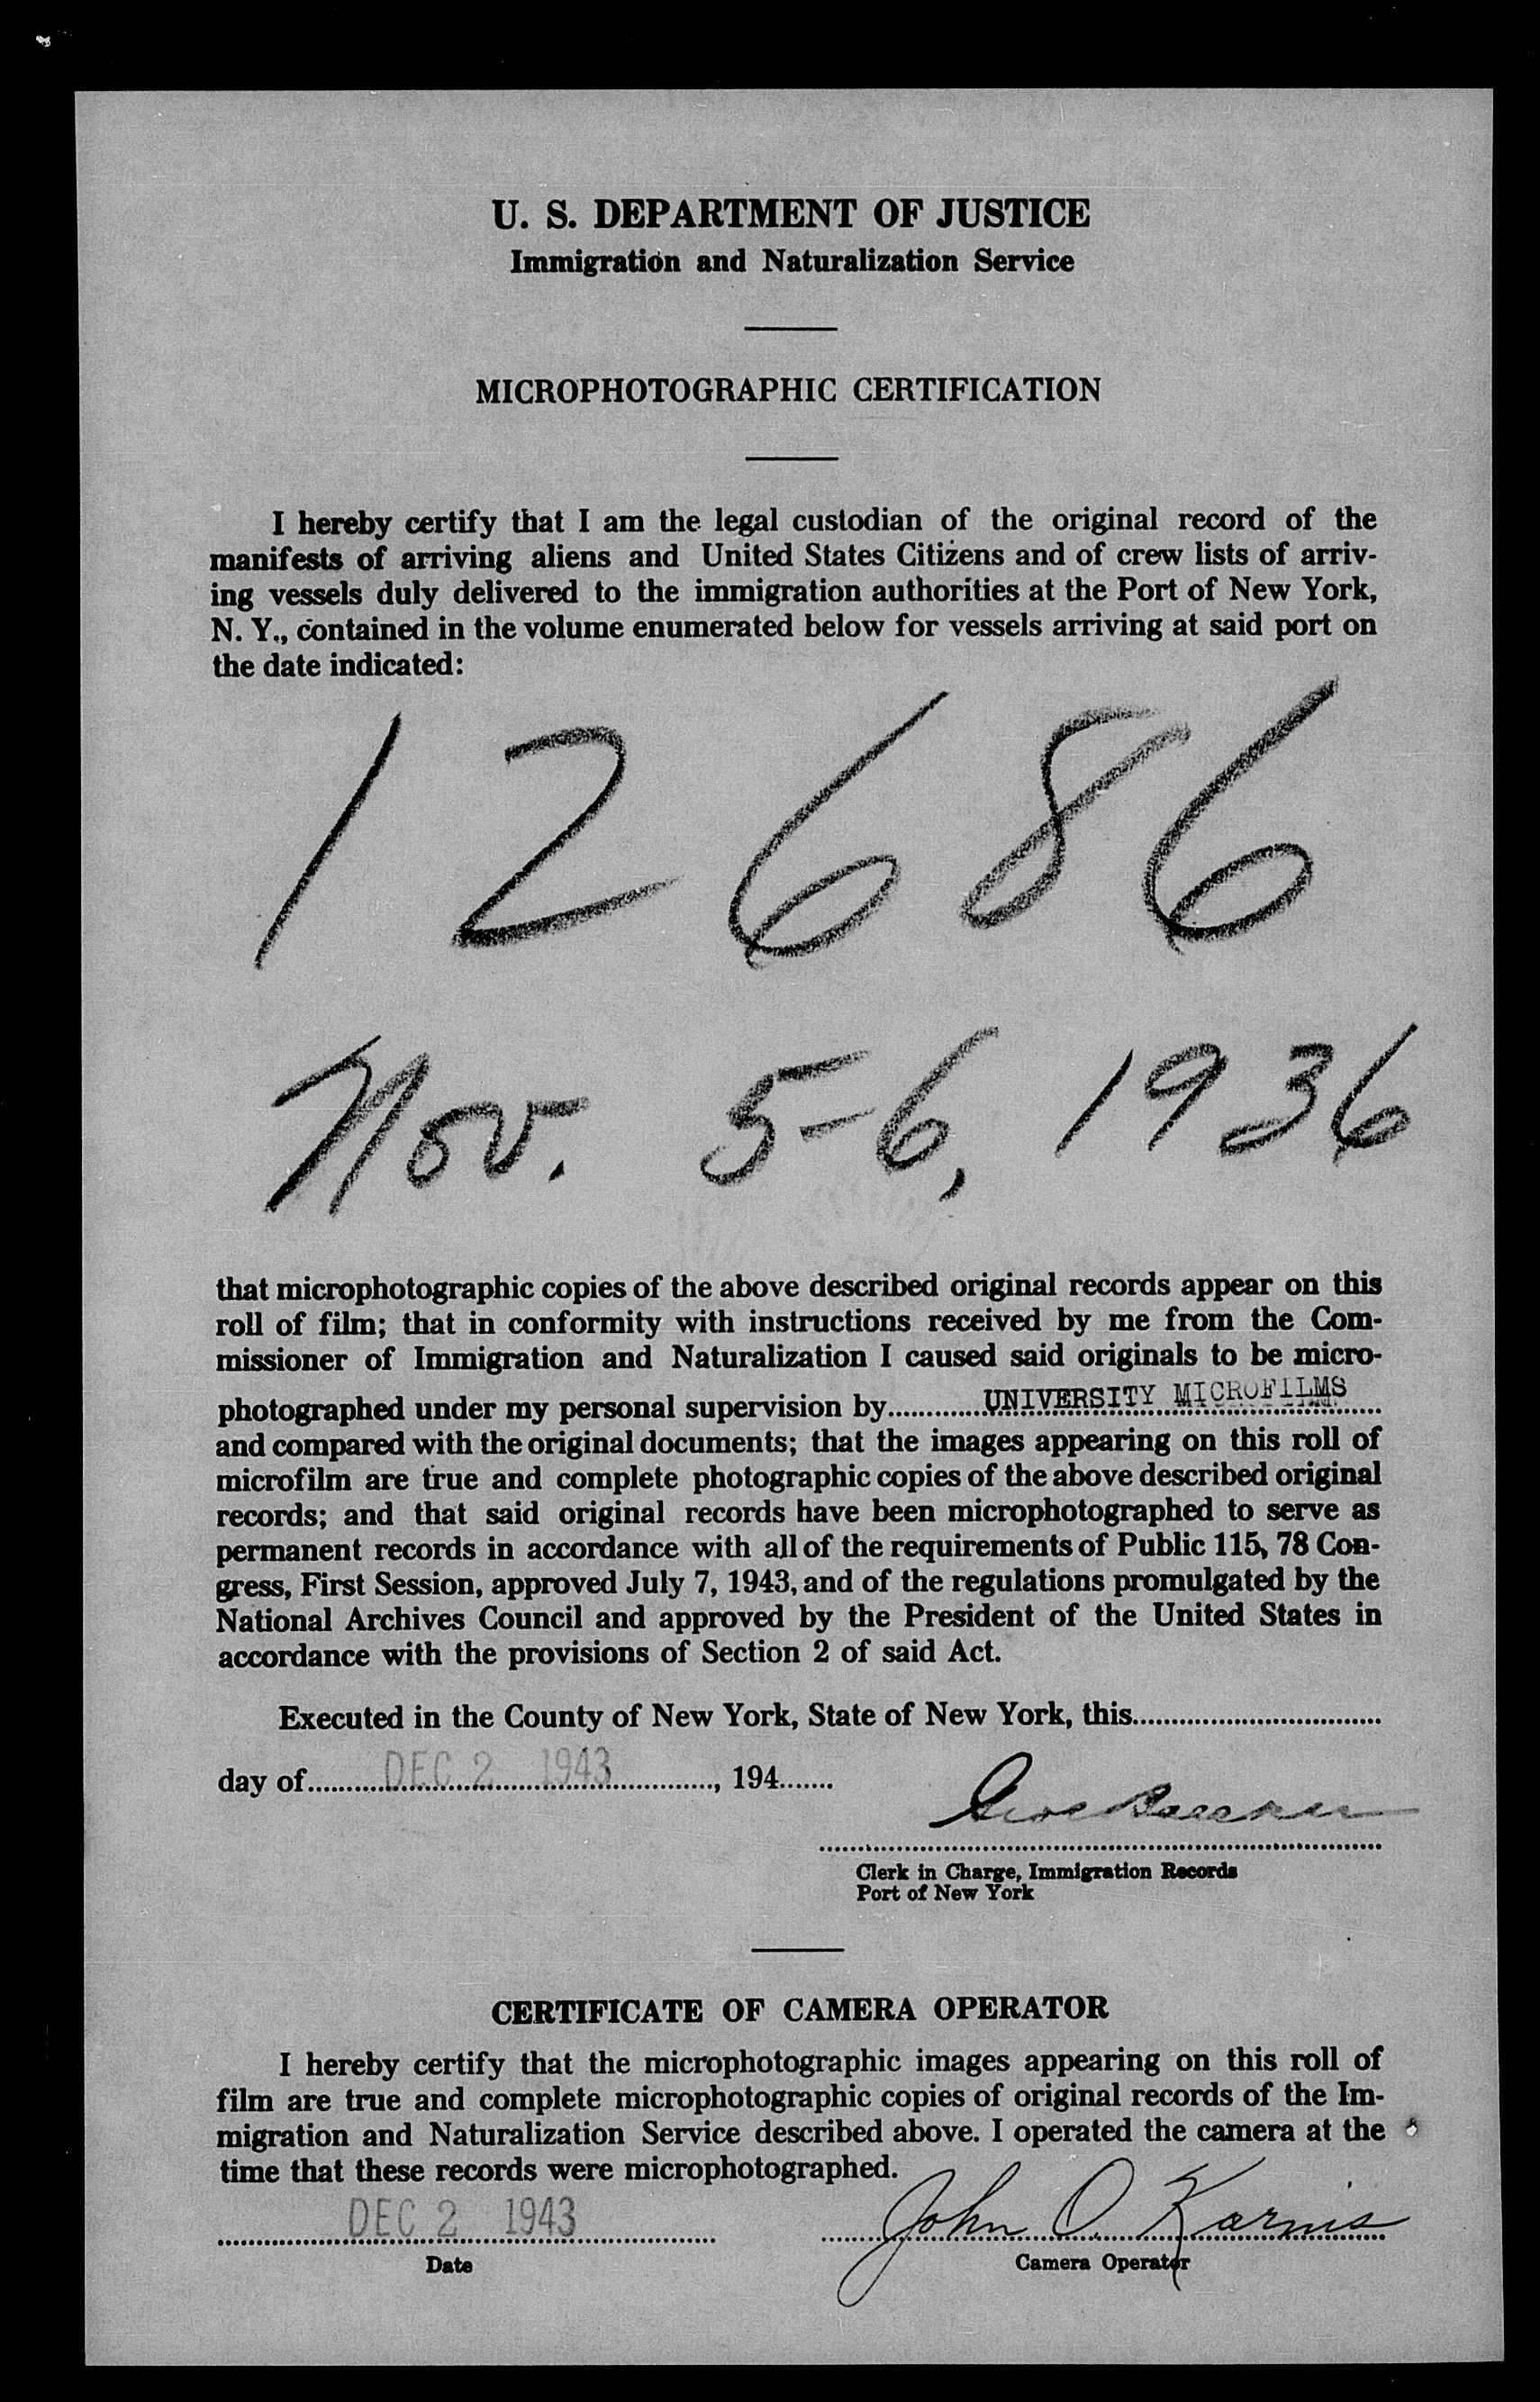 U. S. DEPARTMENT OF JUSTICE
Immigration and Naturalization Service
MICROPHOTOGRAPHIC CERTIFICATION
I hereby certify that I am the legal custodian of the original record of the
manifests of arriving aliens and United States Citizens and of crew lists of arriv-
ing vessels duly delivered to the immigration authorities at the Port of New York,
N. Y., contained in the volume enumerated below for vessels arriving at said port on
the date indicated:
12686
Nov. 5-6, 1936
that microphotographic copies of the above described original records appear on this
roll of film; that in conformity with instructions received by me from the Com-
missioner of Immigration and Naturalization I caused said originals to be micro-
photographed under my personal supervision by UNIVERSITY MICROFILMS
and compared with the original documents; that the images appearing on this roll of
microfilm are true and complete photographic copies of the above described original
records; and that said original records have been microphotographed to serve as
permanent records in accordance with all of the requirements of Public 115, 78 Con-
gress, First Session, approved July 7, 1943, and of the regulations promulgated by the
National Archives Council and approved by the President of the United States in
accordance with the provisions of Section 2 of said Act.
Executed in the County of New York, State of New York, this
day of DEC 2 1943, 194
Clerk in Charge, Immigration Records
Port of New York
CERTIFICATE OF CAMERA OPERATOR
I hereby certify that the microphotographic images appearing on this roll of
film are true and complete microphotographic copies of original records of the Im-
migration and Naturalization Service described above. I operated the camera at the
time that these records were microphotographed.
DEC 2 1943 John O. Karnis
Date Camera Operator